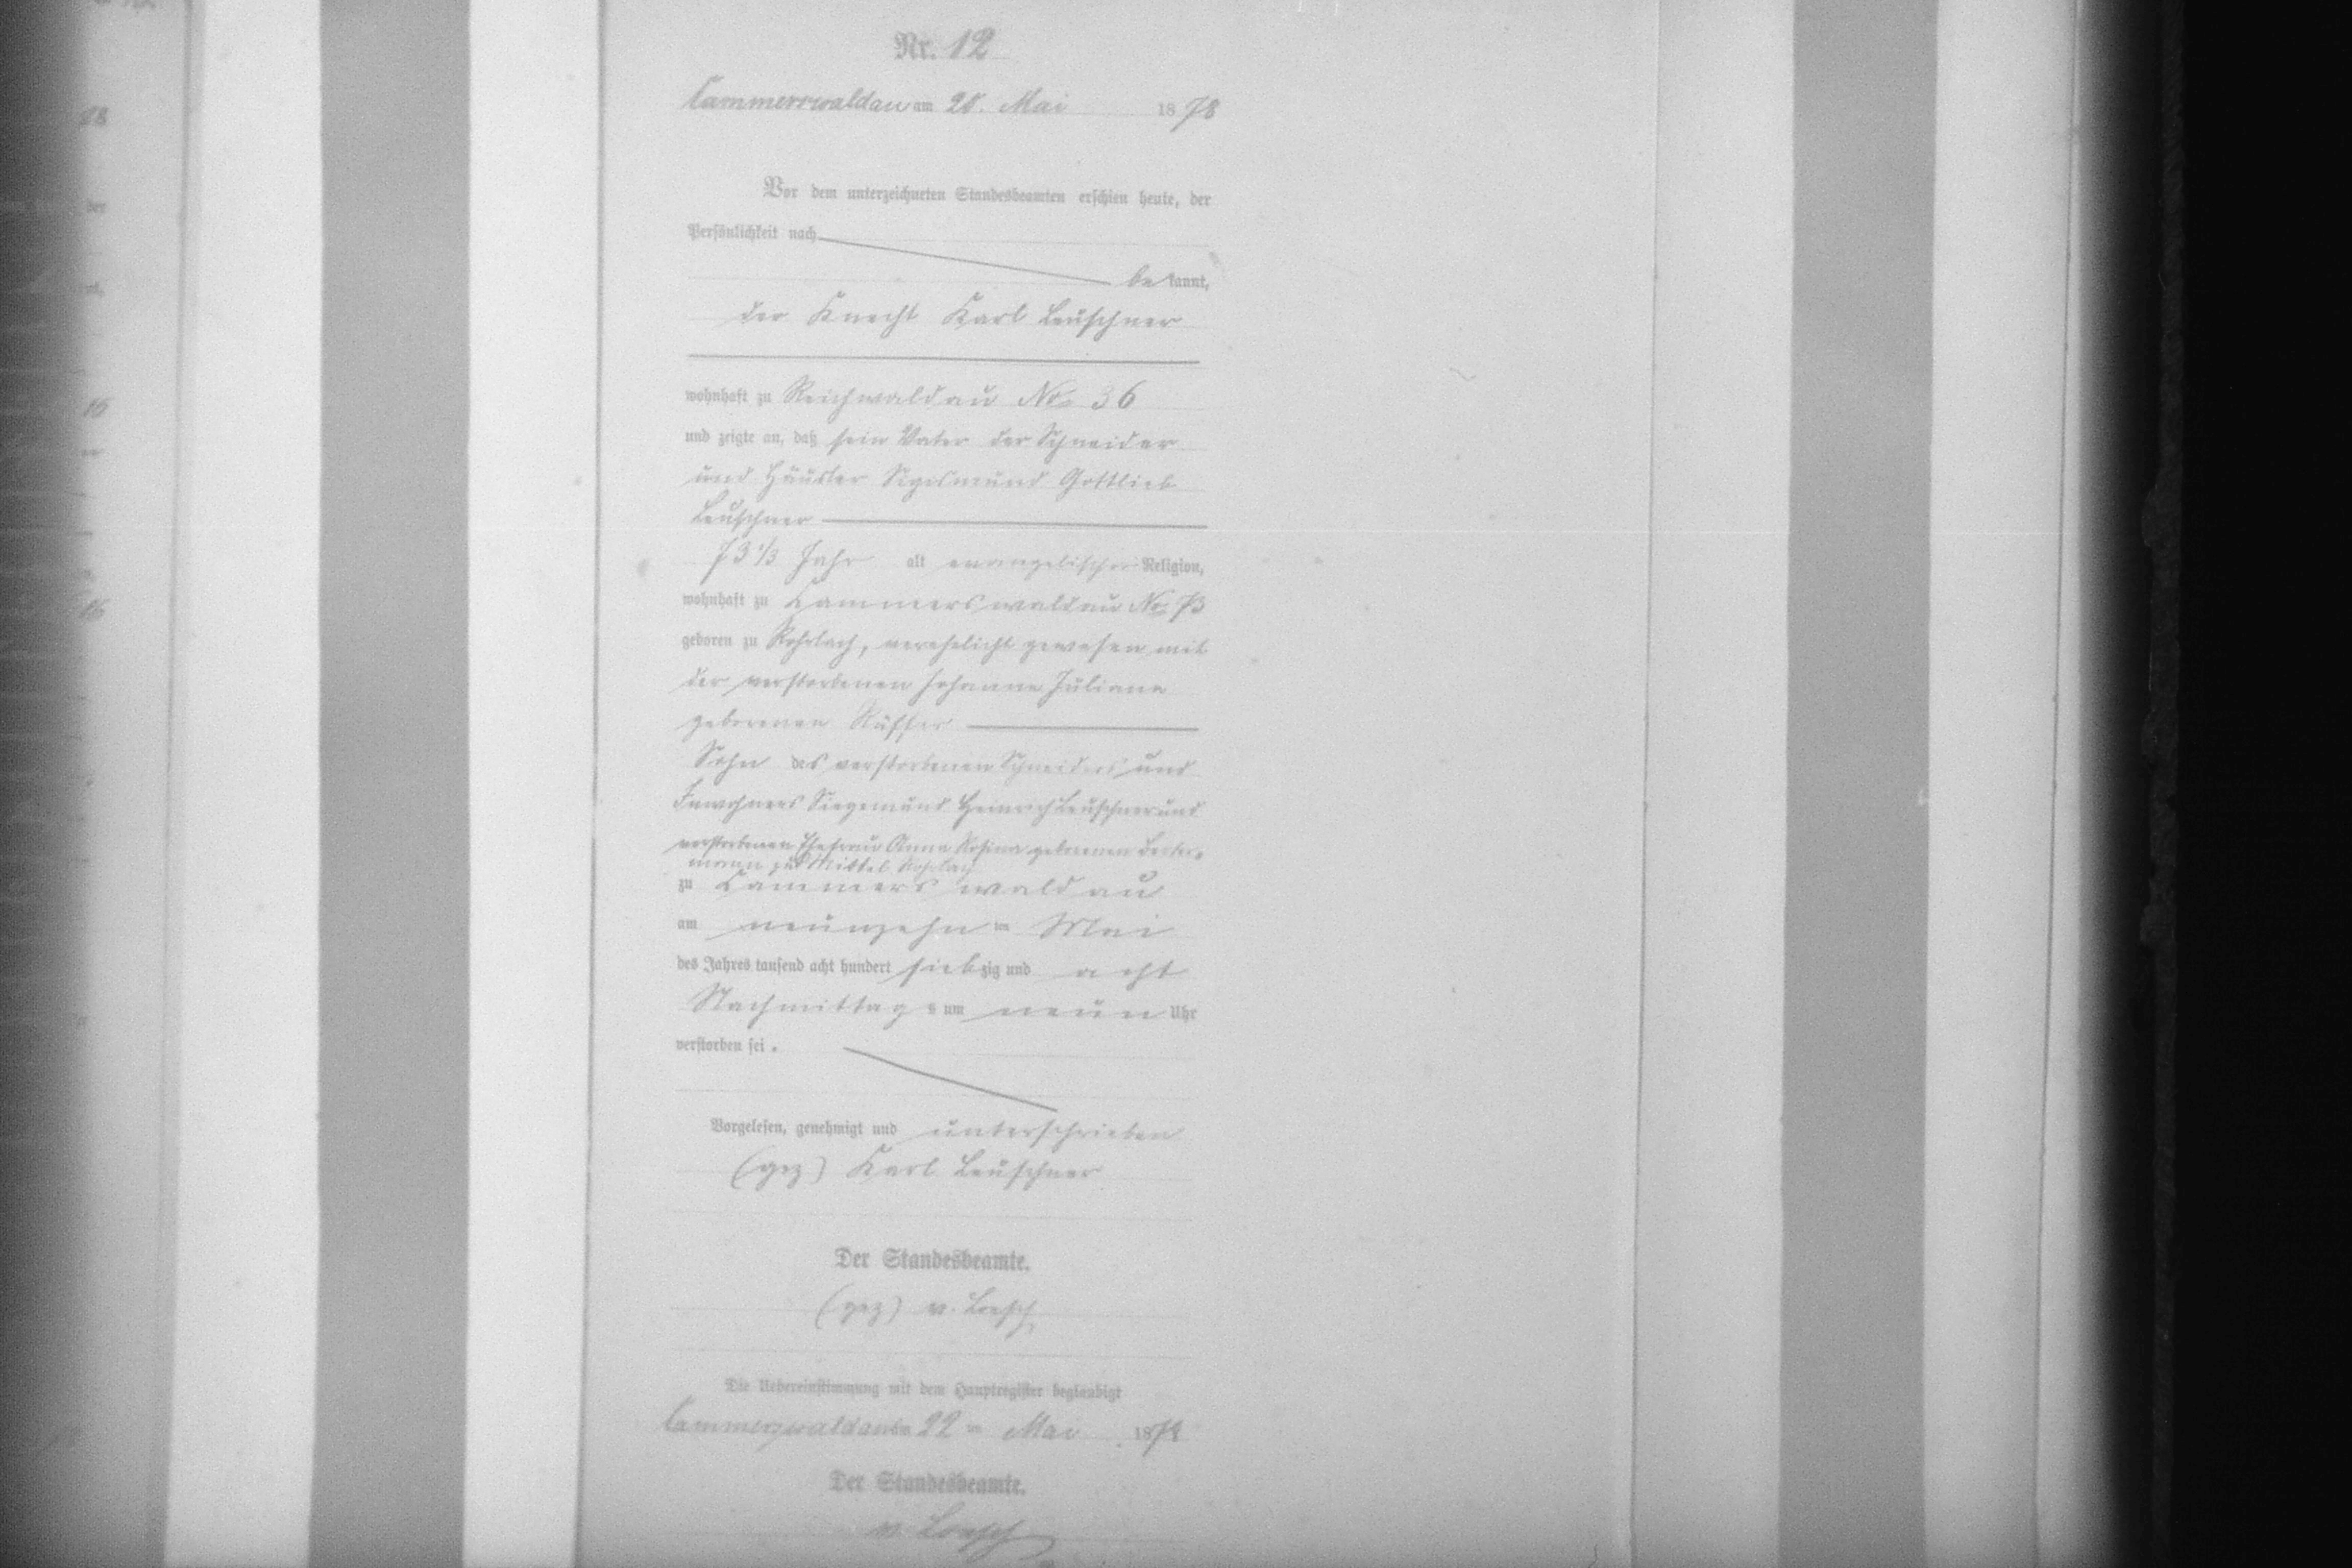 Nr. 12
Cammerswaldau am 20. Mai 1878
Vor dem unterzeichneten Standesbeamten erschien heute, der
Persönlichkeit nach
bekannt,
der Knecht Karl Leuschner
wohnhaft zu Reichwaldau No. 36
und zeigte an, daß sein Vater der Schneider
und Häusler Sigismund Gottlieb
Leuschner
73 1/3 Jahr alt evangelischer Religion,
wohnhaft zu Cammerswaldau No. 73
geboren zu Rohrlach, verehelicht gewesen mit
der verstorbenen Johanne Juliane
geborenen Rüffer
Sohn des verstorbenen Schneiders und
Inwohners Siegemund Heinrich Leuschner und
verstorbenen Ehefrau Anna Rosina geborenen
zu Mittel Rohrlach
zu Cammerswaldau
am neunzehn ten Mai
des Jahres tausend acht hundert siebzig und acht
Nachmittags um neun Uhr
verstorben sei.
Vorgelesen, genehmigt und unterschrieben
(gez) Karl Leuschner
Der Standesbeamte.
(gez) v. Loesch
Die Uebereinstimmung mit dem Hauptregister beglaubigt
Cammerswaldau am 22 ten Mai 1878
Der Standesbeamte.
v. Loesch